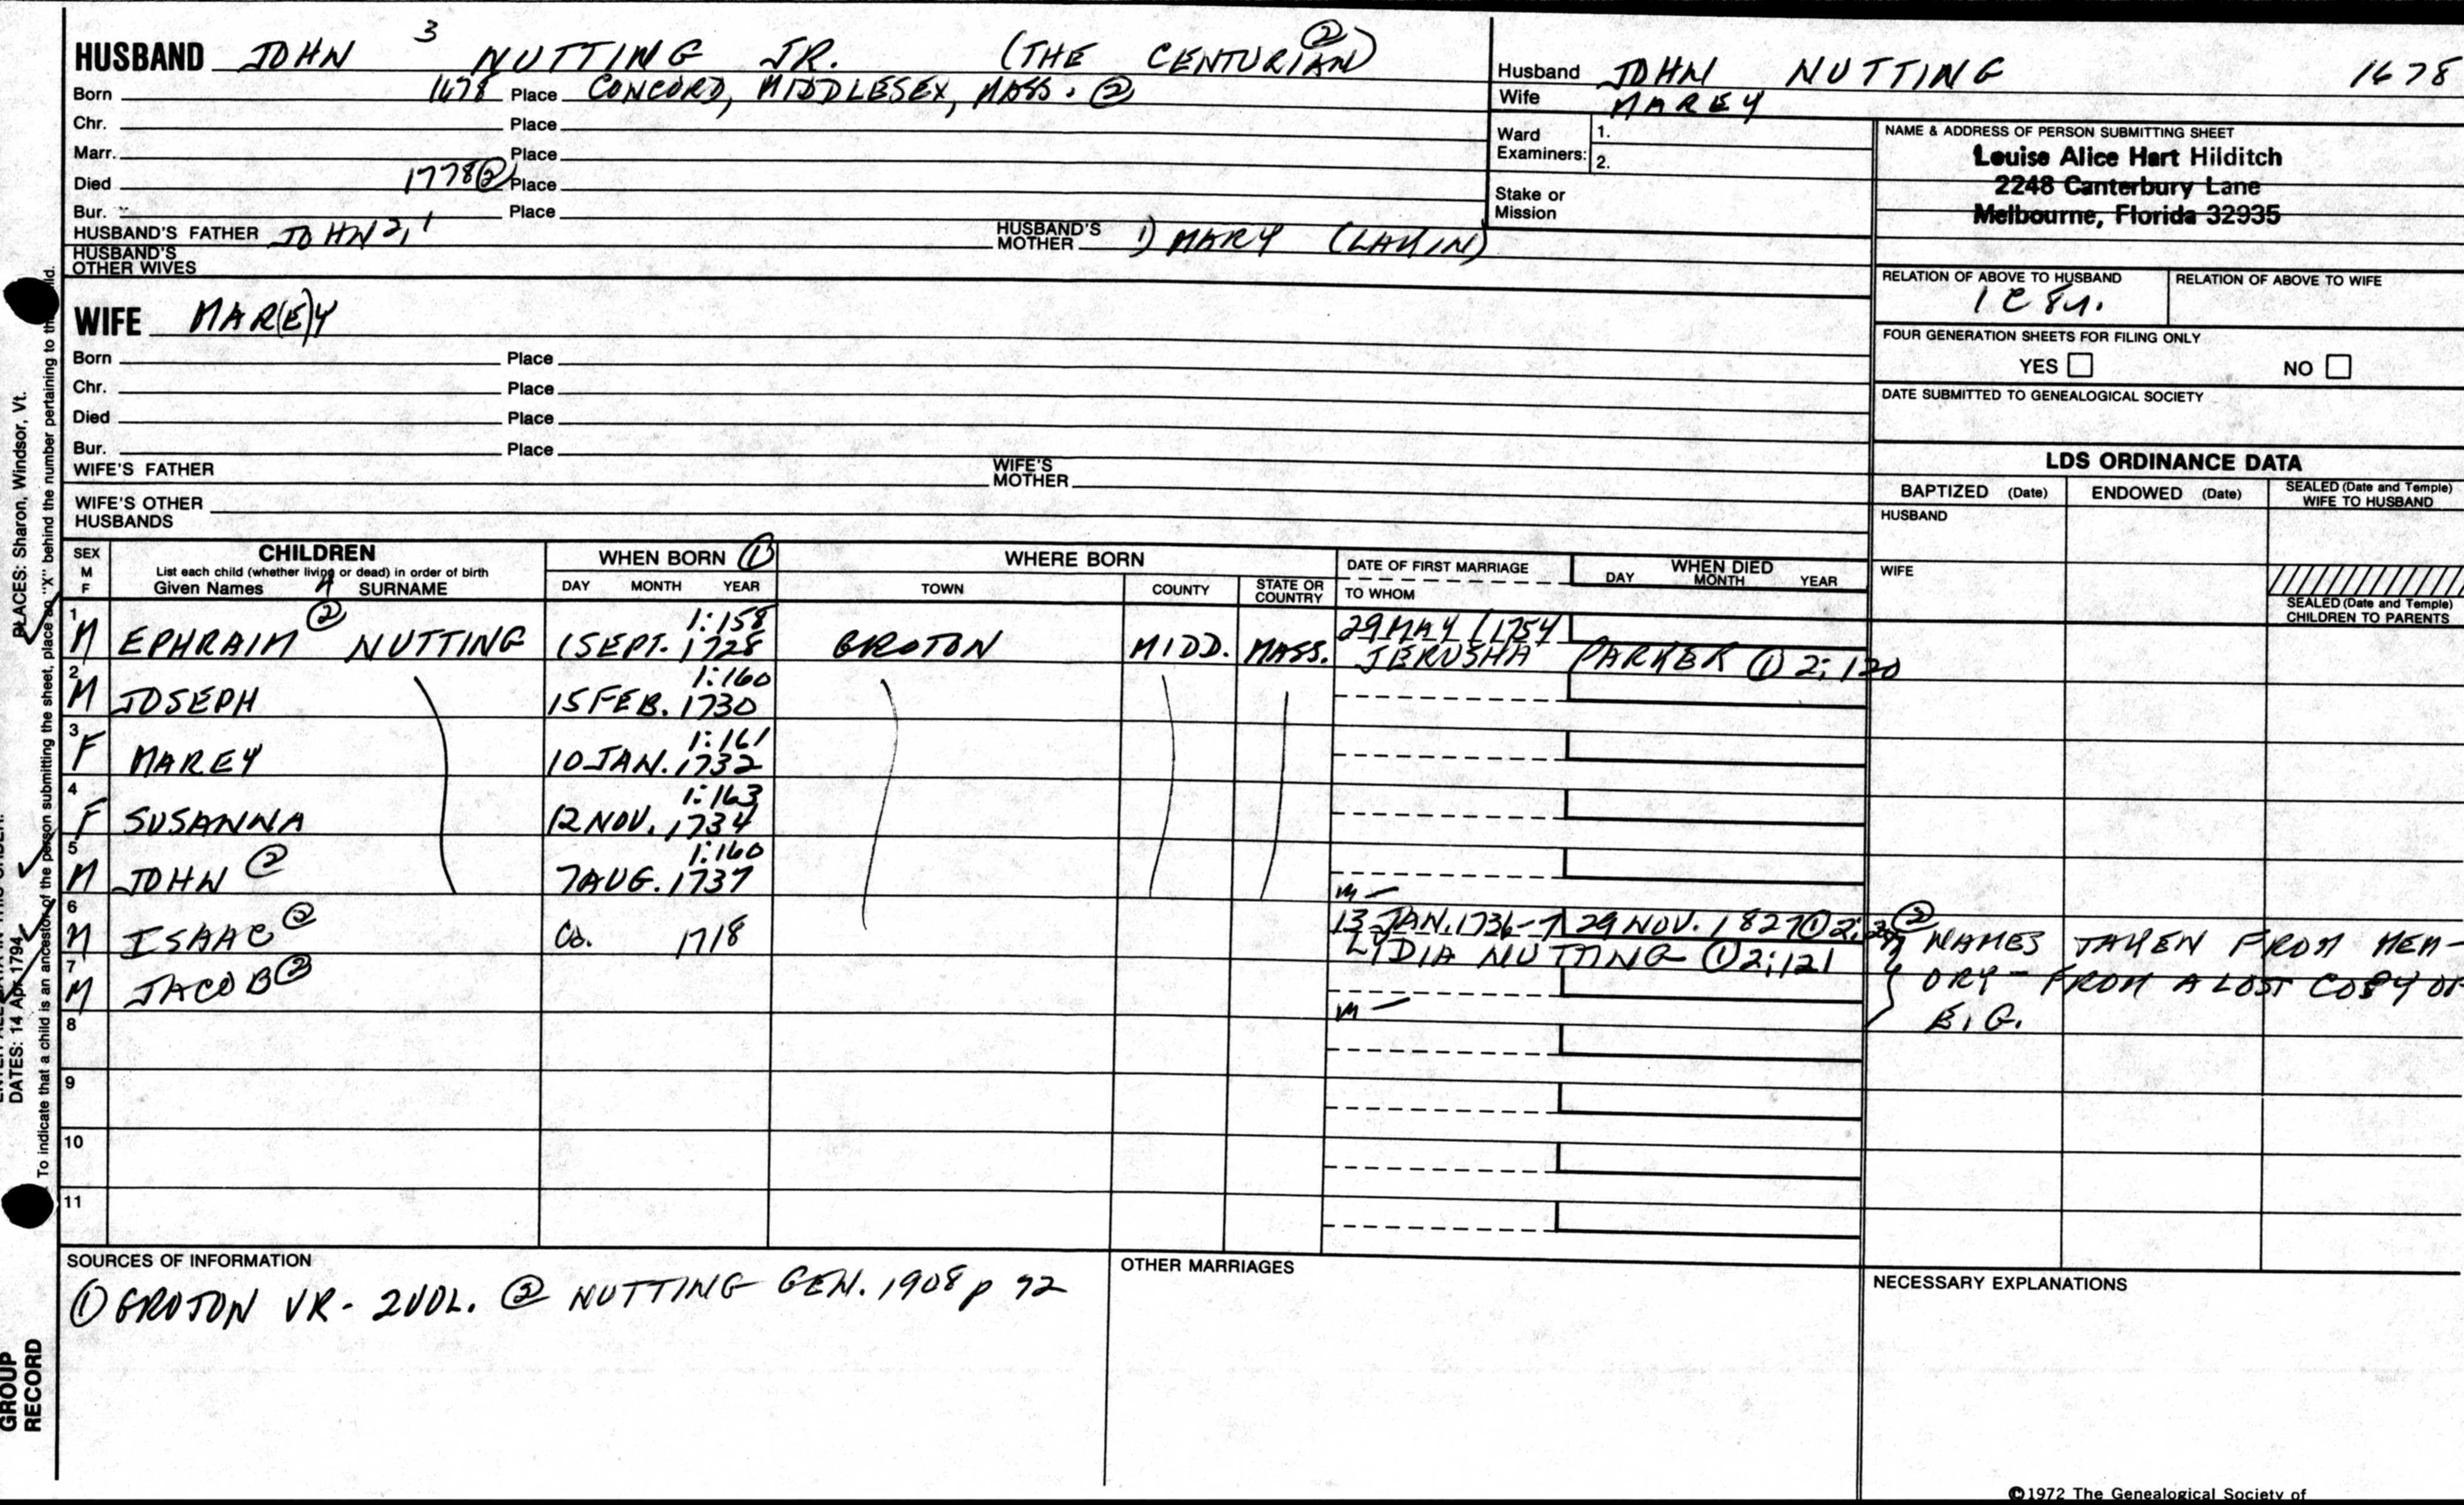 HUSBAND JOHN 3 NUTTING JR. (THE CENTURIAN) ②
Born 1678 Place CONCORD, MIDDLESEX, MASS. ②
Chr. Place
Marr. Place
Died 1778 ② Place
Bur. Place
HUSBAND'S FATHER JOHN 2,1 HUSBAND'S MOTHER 1) MARY (LAKIN)
HUSBAND'S OTHER WIVES
Husband JOHN NUTTING 1678
Wife MAREY
Ward Examiners: 1.
2.
Stake or Mission
NAME & ADDRESS OF PERSON SUBMITTING SHEET
Louise Alice Hart Hilditch
2248 Canterbury Lane
Melbourne, Florida 32935
RELATION OF ABOVE TO HUSBAND RELATION OF ABOVE TO WIFE
1 C 8
FOUR GENERATION SHEETS FOR FILING ONLY
YES NO
DATE SUBMITTED TO GENEALOGICAL SOCIETY
WIFE MAR(E)Y
Born Place
Chr. Place
Died Place
Bur. Place
WIFE'S FATHER WIFE'S MOTHER
WIFE'S OTHER HUSBANDS
LDS ORDINANCE DATA
BAPTIZED (Date) ENDOWED (Date) SEALED (Date and Temple) WIFE TO HUSBAND
HUSBAND
WIFE
SEALED (Date and Temple) CHILDREN TO PARENTS
SEX M F CHILDREN WHEN BORN ① WHERE BORN DATE OF FIRST MARRIAGE WHEN DIED
List each child (whether living or dead) in order of birth
Given Names SURNAME DAY MONTH YEAR TOWN COUNTY STATE OR COUNTRY TO WHOM DAY MONTH YEAR
1 M EPHRAIM ② NUTTING 1 SEPT. 1728 1:158 GROTON MIDD. MASS. 29 MAY 1754
JERUSHA PARKER ① 2:120
2 M JOSEPH 15 FEB. 1730 1:160
3 F MAREY 10 JAN. 1732 1:161
4 F SUSANNA 12 NOV. 1734 1:163
5 M JOHN ② 7 AUG. 1737 1:160
m —
6 M ISAAC ② Ca. 1718 13 JAN. 1736-7 29 NOV. 1827 ① 2:
LYDIA NUTTING ① 2:121
7 M JACOB ②
m —
② NAMES TAKEN FROM MEM-
ORY - FROM A LOST COPY OF
E.G.
8
9
10
11
SOURCES OF INFORMATION
① GROTON VR - 2 VOL. ② NUTTING GEN. 1908 p 92
OTHER MARRIAGES
NECESSARY EXPLANATIONS
©1972 The Genealogical Society of
PLACES: Sharon, Windsor, Vt.
DATES: 14 Apr 1794
To indicate that a child is an ancestor of the person submitting the sheet, place an "X" behind the number pertaining to
GROUP
RECORD